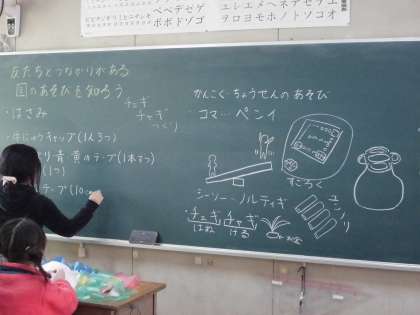 ペペデセゲ
ポボドソゴ
エレエメヘネデセケエ
ヲロヨモホノトソコオ
友だちとつながりがある
国のあそびを知ろう
・はさみ
チェギ
チャギ
つくり
・牛にゅうキャップ(1人3つ)
り 青 黄のテープ(1本ずつ)
(1つ)
テープ(10
かんこく・ちょうせんのあそび
コマ…ペンイ
シーソー…ノルティギ
すごろく
ユンノリ
・チェギチャギ
はね ける